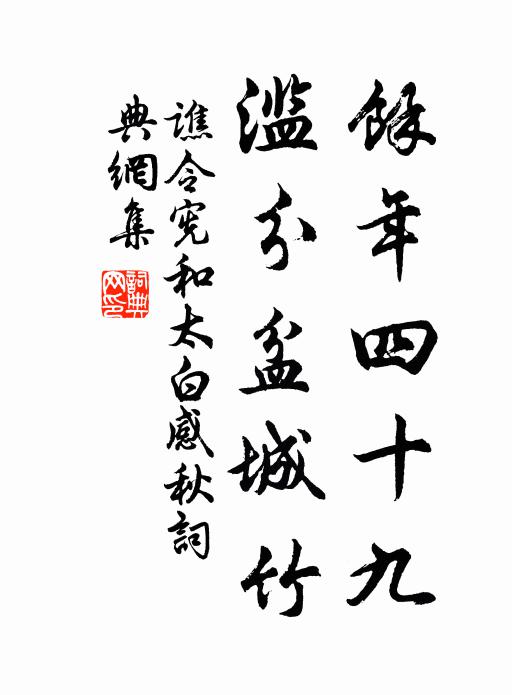 餘年四十九
滥分盆城竹
譙令宪和太白感秋詞
典網集
詞典網印